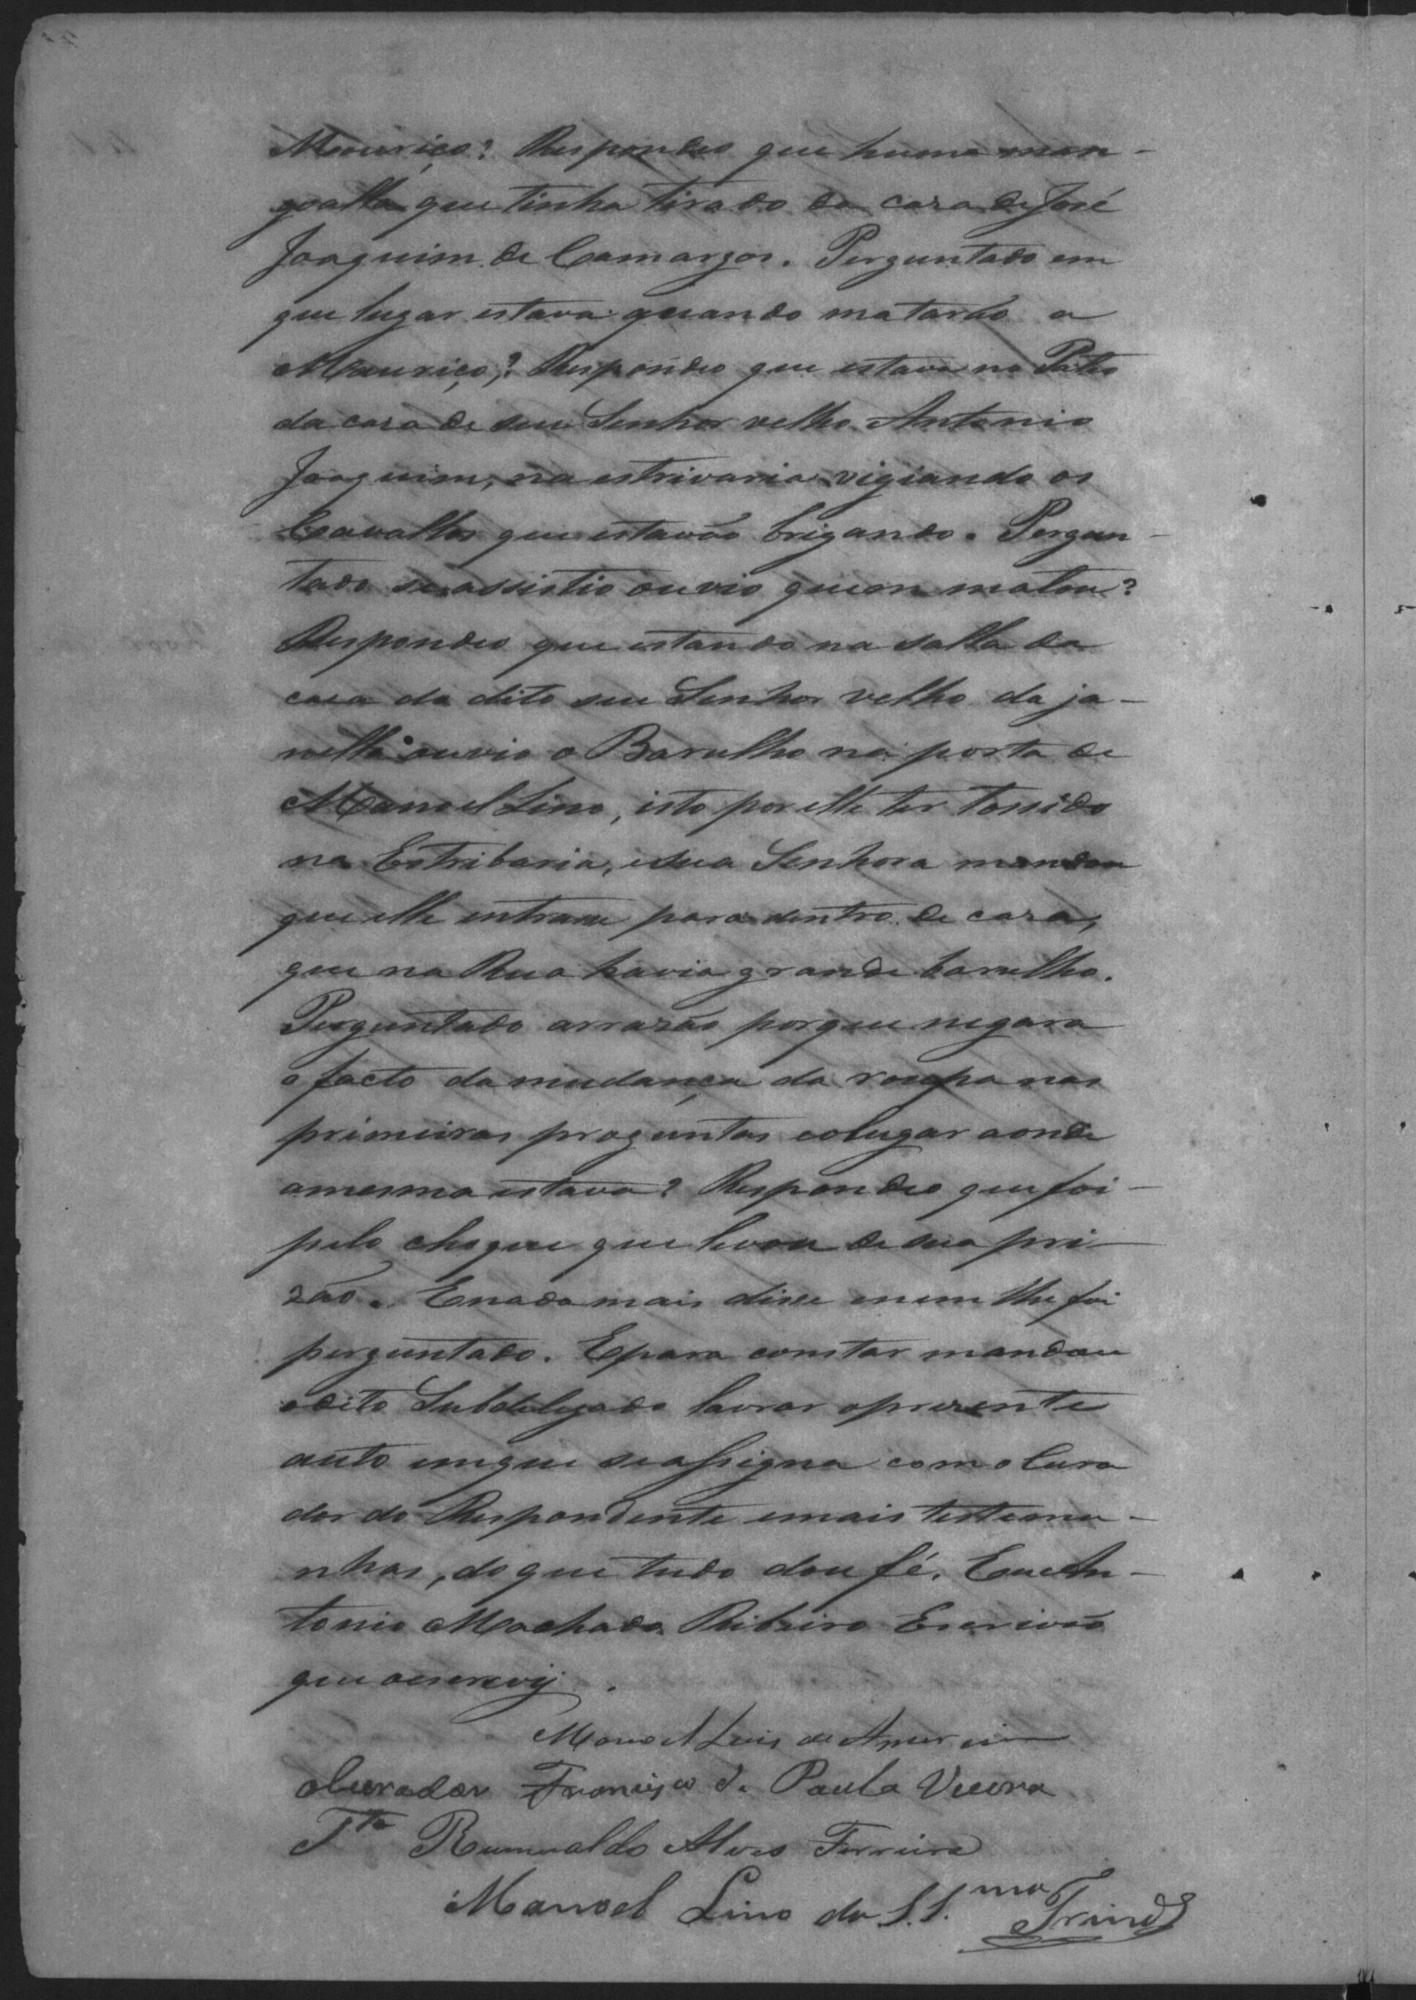 Mauriço? Respondeo que huma man-
goalla que tinha tirado da caza de José
Joaquim de Camargos. Perguntado em
que lugar estava quando matarão a
Mauriço,? Respondeo que estava no Patio
da caza de seu Senhor velho Antonio
Joaquim, na estrivaria vigiando os
Cavallos que estavão brigando. Pergun-
tado se assistio ouvio quem matou?
Respondeo que estando na salla da
casa do dito seu Senhor velho da ja-
nella ouvio o Barulho na porta de
Manoel Lino, isto por elle ter tossido
na Estribaria, e sua Senhora mandou
que elle entrasse para dentro de caza,
que na Rua havia grande barulho.
Perguntado arrazão porque negara
o facto da mudança da roupa nas
primeiras proguntas eolugar aonde
amesma estava? Respondeo que foi
pelo choque que levou de sua pri-
zão. Enada mais disse enem lhe foi
perguntado. Epara constar mandou
odito Subdelegado lavrar oprezente
auto emque seassigna com oCura
dor do Respondente emais testemu-
nhas, do que tudo dou fé. Eu An-
tonio Machado Ribeiro Escrivão
que oescrevij.
Manoel Luis de
oCurador Francisco de Paula
Tta Rumualdo Alves Ferreira
Manoel Lino da S.S.ma Trinde